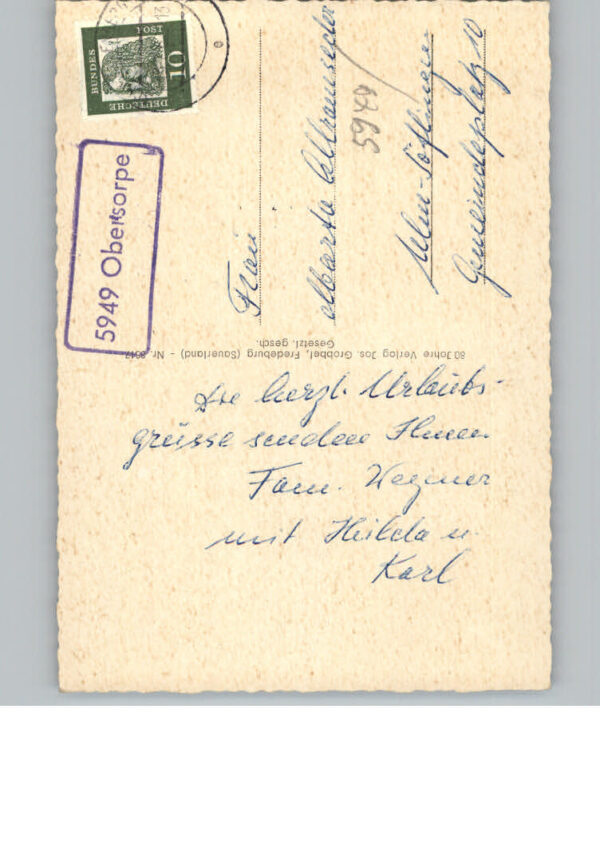 DEUTSCHE
BUNDES
POST
10
5949 Obersorpe
5949
Frau
Ulm-Söflingen
Gemeindeplatz 10
80 Jahre Verlag Jos. Grobbel, Fredeburg (Sauerland) - Nr.
Gesetzl. gesch.
Die herzl. Urlaubs-
grüsse senden Ihnen
Fam. Wegner
mit Hilda u.
Karl